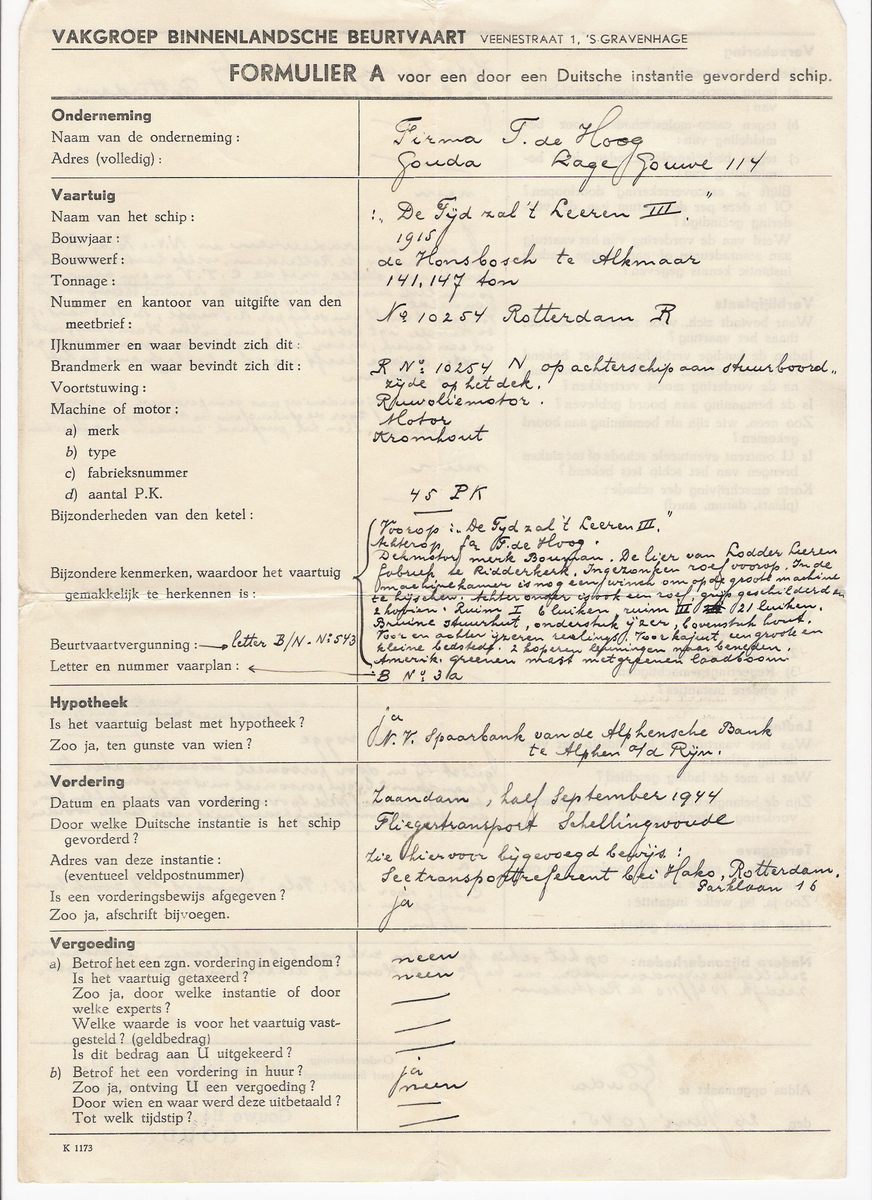 VAKGROEP BINNENLANDSCHE BEURTVAART VEENESTRAAT 1, 'S-GRAVENHAGE
FORMULIER A voor een door een Duitsche instantie gevorderd schip.
Onderneming
Naam van de onderneming : Firma T. de Hoog
Adres (volledig) : Gouda Lage Gouwe 114
Vaartuig
Naam van het schip : : „De Tijd zal 't Leeren III."
Bouwjaar : 1915
Bouwwerf : de Honsbosch te Alkmaar
Tonnage : 141,147 ton
Nummer en kantoor van uitgifte van den
meetbrief : No 10254 Rotterdam R
IJknummer en waar bevindt zich dit :
Brandmerk en waar bevindt zich dit : R No. 10254 N op achterschip aan stuurboord„
zijde op het dek.
Voortstuwing : Ruwoliemotor.
Machine of motor : Motor
a) merk Kromhout
b) type
c) fabrieksnummer
d) aantal P.K. 45 PK
Bijzonderheden van den ketel :
Bijzondere kenmerken, waardoor het vaartuig
gemakkelijk te herkennen is :
Voorop : „De Tijd zal 't Leeren III."
Achterop fa T. de Hoog.
Dekmotor, merk Bouman. De lier van Lodder Leeren
fabriek te Ridderkerk. Ingezonken roef voorop. In de
machinekamer is nog een winch om op de groote machine
te hijschen. Achter onder is ook een roef, grijs geschilderd en
2 kooien. Ruim I 6 luiken, ruim II 21 luiken.
Bruine stuurhut, onderstuk ijzer, bovenstuk hout.
Voor en achter ijzeren realings. Voor kajuit, een groote en
kleine bedstede. 2 koperen leuningen naar beneden.
Amerik. greenen mast met greenen laadboom
Beurtvaartvergunning : letter B/N - No 543
Letter en nummer vaarplan : B No. 3a
Hypotheek
Is het vaartuig belast met hypotheek ? ja
Zoo ja, ten gunste van wien ? N.V. Spaarbank van de Alphensche Bank
te Alphen a/d Rijn.
Vordering
Datum en plaats van vordering : Zaandam, half September 1944
Door welke Duitsche instantie is het schip
gevorderd ? Fliegertransport Schellingwoude
Adres van deze instantie : Zie hiervoor bijgevoegd bewijs :
(eventueel veldpostnummer) Seetransportreferent bei Hako, Rotterdam,
Parklaan 16
Is een vorderingsbewijs afgegeven ? ja
Zoo ja, afschrift bijvoegen.
Vergoeding
a) Betrof het een zgn. vordering in eigendom ? neen
Is het vaartuig getaxeerd ? neen
Zoo ja, door welke instantie of door
welke experts ? —
Welke waarde is voor het vaartuig vast-
gesteld ? (geldbedrag) —
Is dit bedrag aan U uitgekeerd ? —
b) Betrof het een vordering in huur ? ja
Zoo ja, ontving U een vergoeding ? neen
Door wien en waar werd deze uitbetaald ? —
Tot welk tijdstip ? —
K 1173